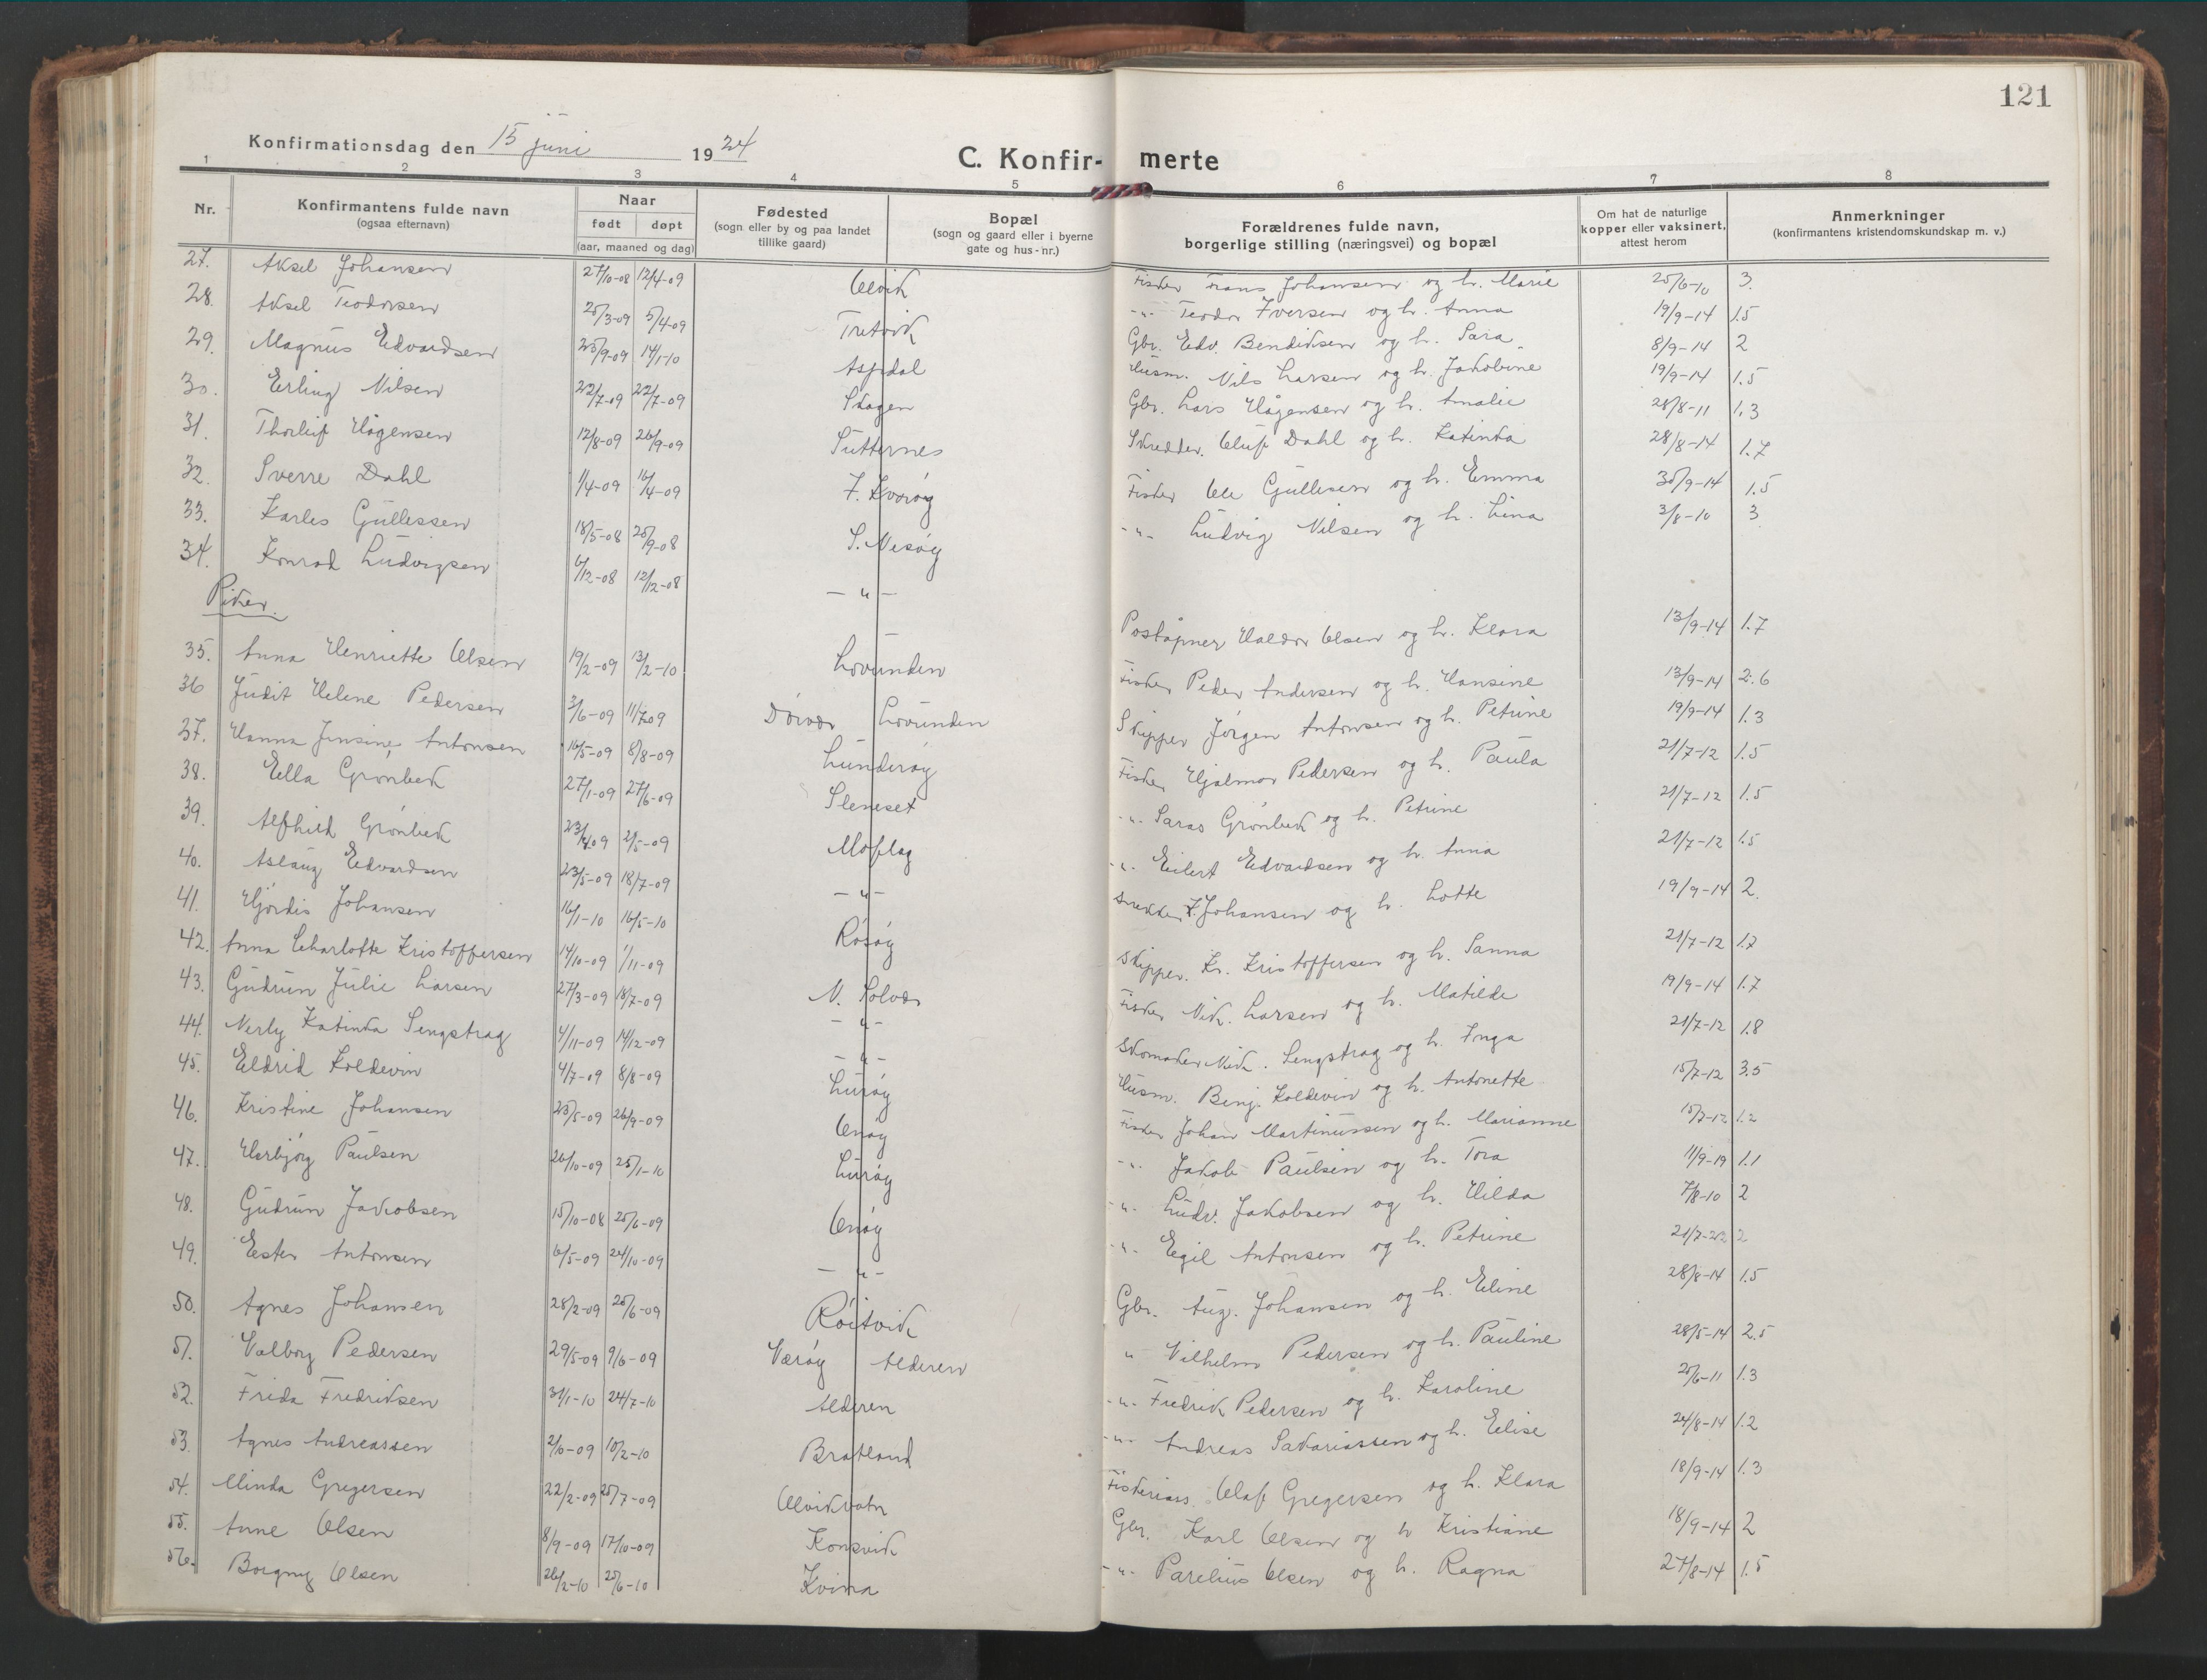 121
Konfirmationsdag den 15 juni 1924
C. Konfir- merte
1 2 3 4 5 6 7 8
Nr. Konfirmantens fulde navn (ogsaa efternavn) Naar født døpt (aar, maaned og dag) Fødested (sogn eller by og paa landet tillike gaard) Bopæl (sogn og gaard eller i byerne gate og hus-nr.) Forældrenes fulde navn, borgerlige stilling (næringsvei) og bopæl Om hat de naturlige kopper eller vaksinert, attest herom Anmerkninger (konfirmantens kristendomskundskap m. v.)
27. Aksel Johansen 27/10-08 12/4-09 Olvik Fisker Frans Johansen og h. Marie 25/6-10 3.
28. Aksel Teodorsen 25/3-09 5/4-09 Tretvik -"- Teodor Iversen og h. Anna 19/9-14 1.5
29. Magnus Edvardsen 25/9-09 14/1-10 Aspdal Gbr. Edv. Bendiksen og h. Sara. 8/9-14 2
30. Erling Nilsen 22/7-09 22/7-09 Skogen Husm. Nils Larsen og h. Jakobine 19/9-14 1.5
31. Thorleif Hågensen 12/8-09 26/9-09 Sütternes Gbr. Lars Hågensen og h. Amalie 28/8-11 1.3
32. Sverre Dahl 1/4-09 16/4-09 I. Kvarøy Skredder. Oluf Dahl og h. Katinka 28/8-14 1.7
33. Karles Gullesen 18/5-08 20/9-08 S. Nesøy Fisker Ole Gullesen og h. Emma 30/9-14 1.5
34. Konrad Ludvigsen 6/12-08 12/12-08 -"- -"- Ludvig Nilsen og h. Lina 3/8-10 3
Piker.
35. Anna Henriette Olsen 19/2-09 13/2-10 Lovunden Poståpner Haldor Olsen og h. Klara 13/9-14 1.7
36 Judit Helene Pedersen 3/6-09 11/7-09 Dørvær Lovunden Fisker Peder Andersen og h. Hansine 13/9-14 2.6
37. Hanna Jensine Antonsen 16/5-09 8/8-09 Lunderøy Skipper Jørgen Antonsen og h. Petrine 19/9-14 1.3
38. Ella Grønbek 27/1-09 27/6-09 Sleneset Fisker Hjalmar Pedersen og h. Paula 21/7-12 1.5
39. Alfhild Grønbek 23/4-09 2/5-09 Moflag -"- Saras Grønbek og h. Petrine 21/7-12 1.5
40. Aslaug Edvardsen 23/5-09 18/7-09 -"- -"- Eilert Edvardsen og h. Anna 21/7-12 1.5
41. Hjørdis Johansen 16/1-10 16/5-10 Røsøy Snekker F. Johansen og h. Lotte 19/9-14 2.
42. Anna Charlotte Kristoffersen 14/10-09 1/11-09 Skipper. Kr. Kristoffersen og h. Sanna 21/7-12 1.7
43. Gudrun Julie Larsen 27/3-09 18/7-09 N. Solvær Fisker Nik. Larsen og h. Matilde 19/9-14 1.7
44. Nerly Katinka Sengstrag 4/11-09 14/12-09 -"- Skomaker Nik. Sengstrag og h. Inga 21/7-12 1.8
45. Eldrid Koldevin 4/7-09 8/8-09 -"- Husm. Benj. Koldevin og h. Antonette 15/7-12 3.5
46. Kristine Johansen 25/5-09 26/9-09 Lurøy Fisker Johan Martinussen og h. Marianne 15/7-12 1.2
47. Herbjørg Paulsen 26/10-09 25/1-10 Onøy -"- Jakob Paulsen og h. Tora 11/9-19 1.1
48. Gudrun Jakobsen 15/10-08 25/6-09 Lurøy -"- Ludv. Jakobsen og h. Hilda 7/8-10 2
49. Ester Antonsen 6/5-09 24/10-09 Onøy -"- Egil Antonsen og h. Petrine 21/7-22 2
50. Agnes Johansen 28/2-09 20/6-09 -"- Gbr. Aug. Johansen og h. Eline 28/8-14 1.5
51. Valborg Pedersen 29/5-09 9/6-09 Røitvik " Vilhelm Pedersen og h. Pauline 28/5-14 2.5
52. Frida Fredriksen 31/1-10 24/7-10 Værøy Alderen -"- Fredrik Pedersen og h. Karoline 20/6-11 1.3
53. Agnes Andreassen 2/10-09 10/2-10 Alderen -"- Andreas Sakariassen og h. Elise 24/8-14 1.2
54. Minda Gregersen 22/2-09 25/7-09 Bratland Fiskeriarb. Olaf Gregersen og h. Klara 18/9-14 1.3
55. Anne Olsen 8/9-09 17/10-09 Olvikvatn Gbr. Karl Olsen og h Kristiane 18/9-14 2
56. Borgny Olsen 26/2-10 25/6-10 Konsvik -"- Parelius Olsen og h. Ragna 27/8-14 1.5
Kvina